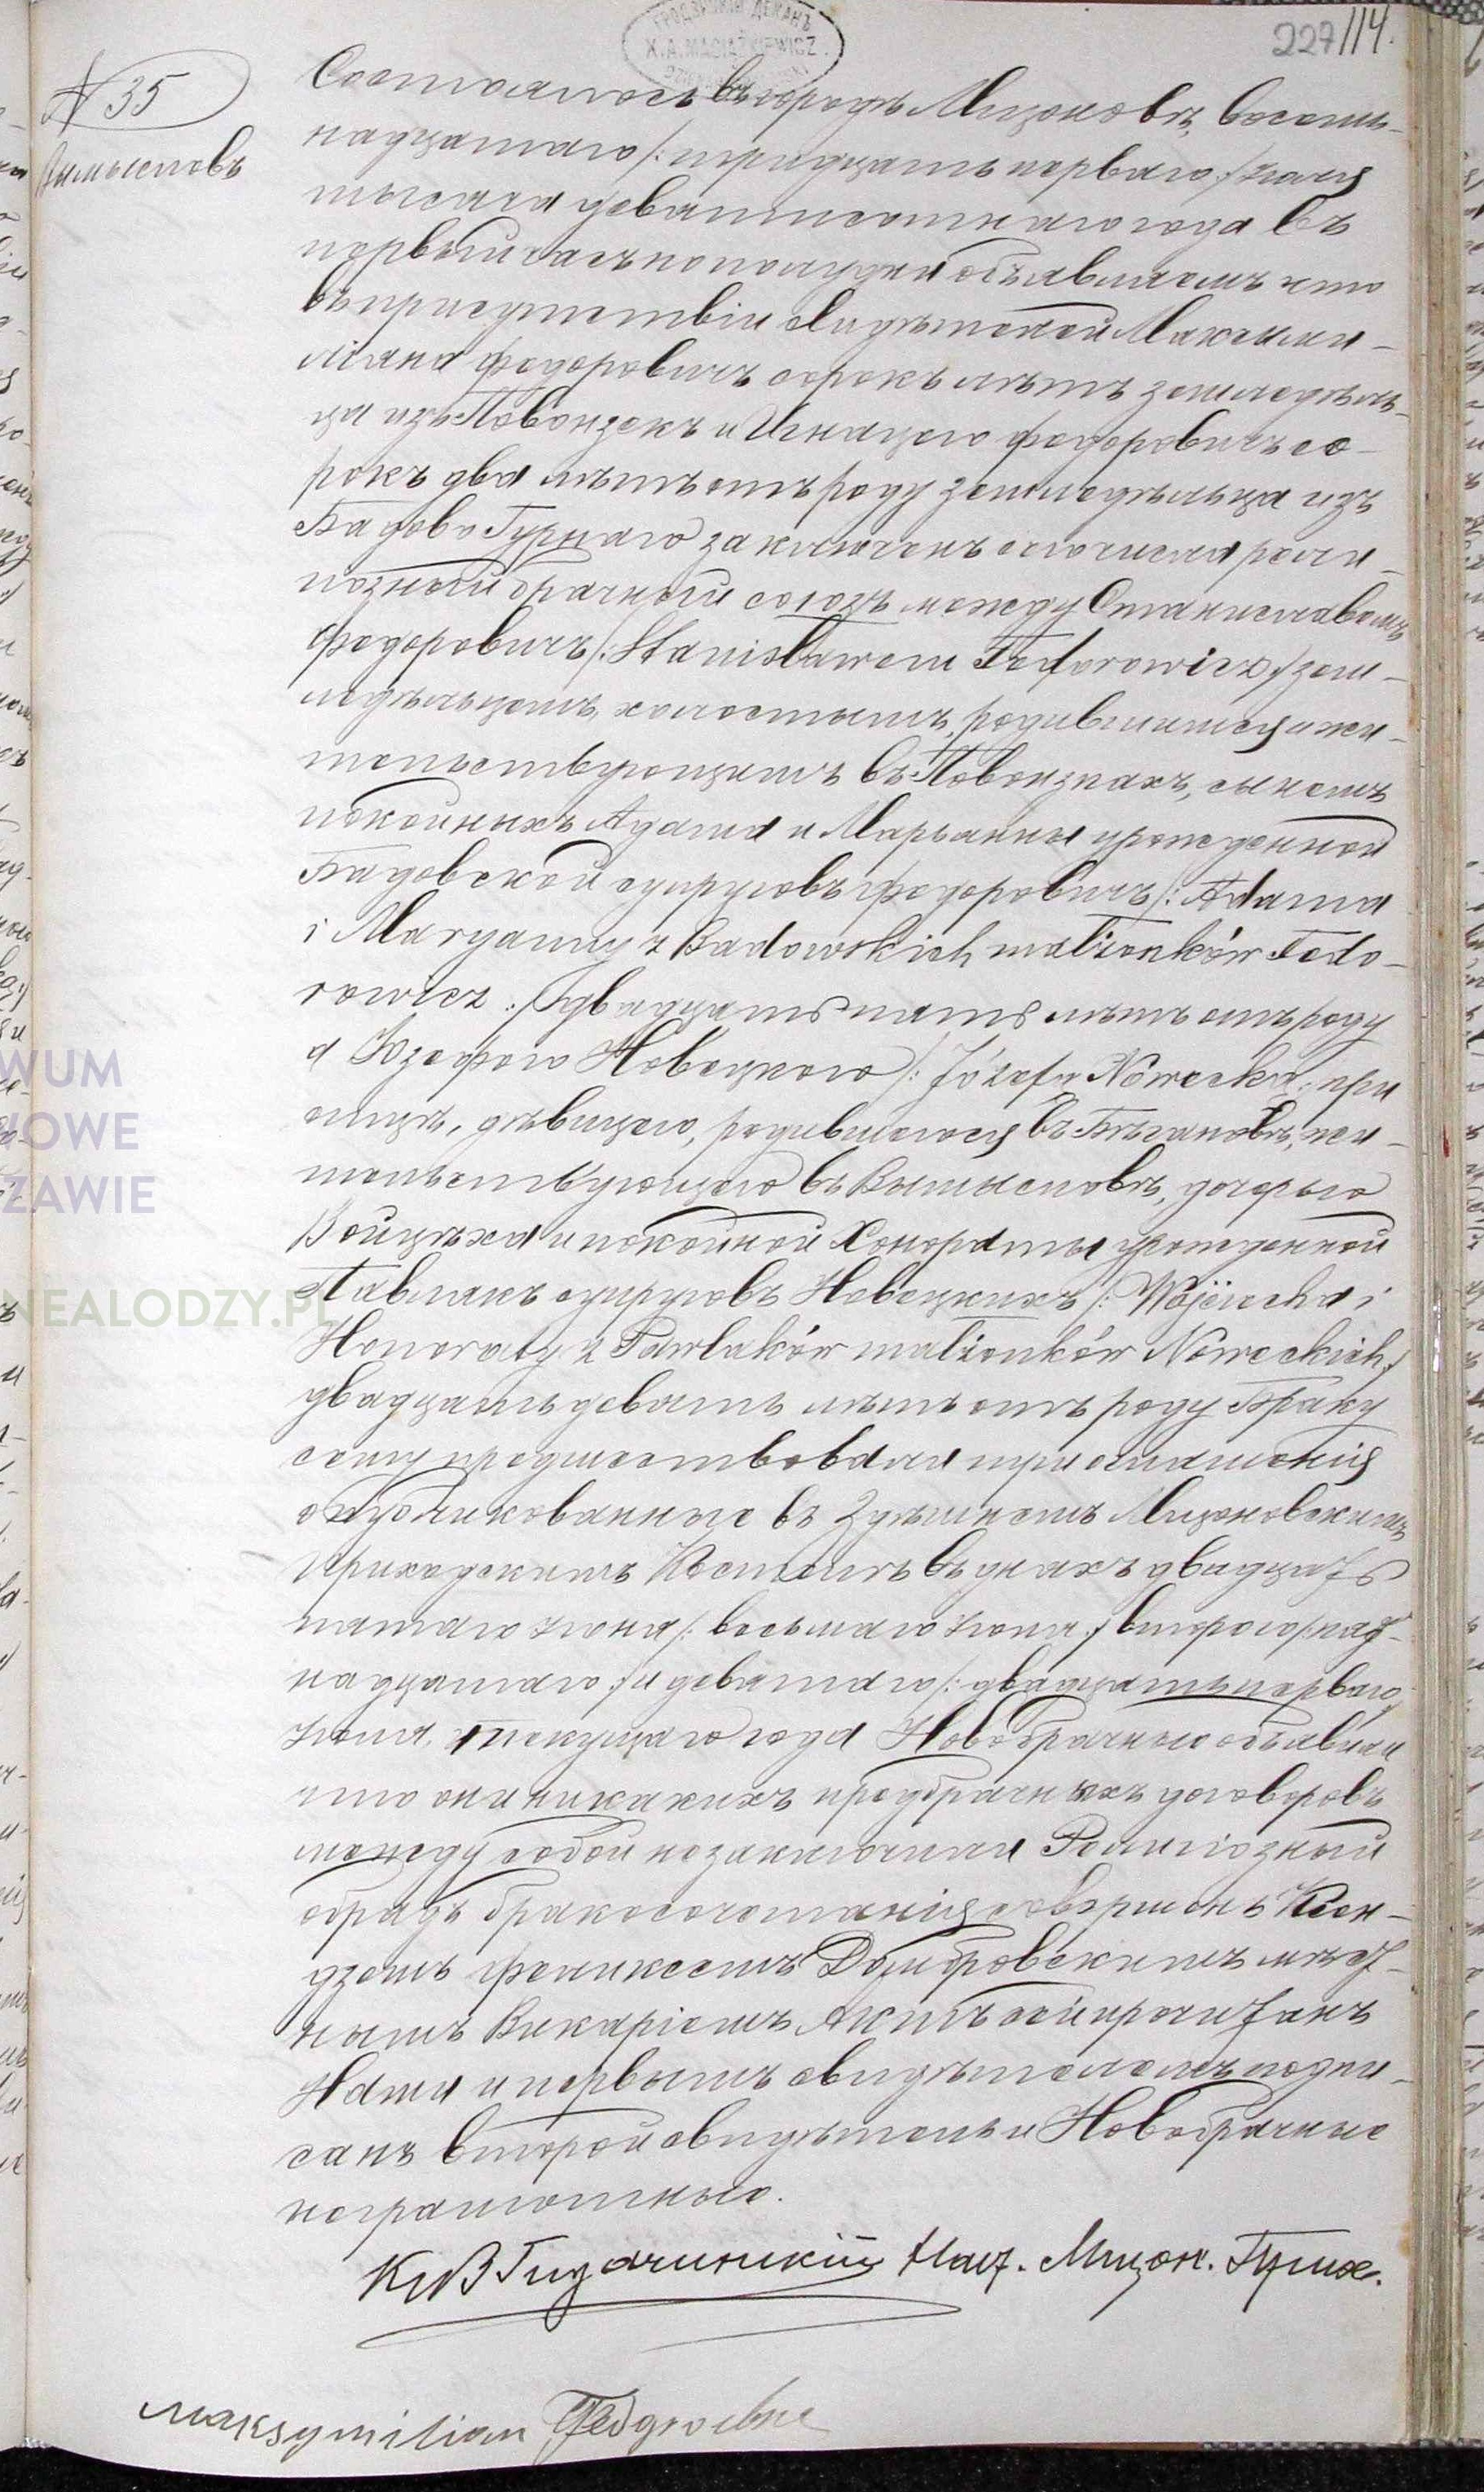 227 114.
ГРОДЗИСКІЙ ДЕКАНЪ
X. A. MACIĄŻKIEWICZ
№ 35
Вымысловъ
Состоялось въ городѣ Мщоновѣ, восем-
надцатаго /: тридцать перваго :/ Іюля
тысяча девятисотнаго года въ
первый часъ пополудни объявляемъ что
въ присутствіи свидѣтелей Максими-
ліана Федоровичъ сорокъ лѣтъ земледѣль-
ца изъ Повонзекъ и Игнацего Федоровичъ со-
рокъ два лѣтъ отъ роду земледѣльца изъ
Бадово Гурнаго заключенъ сего числа рели-
гіозный брачный союзъ между Станиславомъ
Федоровичъ /: Stanisławem Fedorowicz :/ зем-
ледѣльцемъ, холостымъ, родившимся и жи-
тельствующимъ въ Повонзкахъ, сыномъ
покойныхъ Адама и Марьянны урожденной
Бадовской супруговъ Федоровичъ /: Adama
i Maryanny z Badowskich małżonków Fedo-
rowicz :/ двадцать пять лѣтъ отъ роду
а Юзефою Новецкою /: Józefą Nowecką :/ при
отцѣ, дѣвицею, родившеюся въ Бѣгановѣ, жи-
тельствующею въ Вымысловѣ, дочерью
Войцѣха и покойной Хонораты урожденной
Павлакъ супруговъ Новецкихъ /: Wojciecha i
Honoraty z Pawlaków małżonków Noweckich :/
двадцать девять лѣтъ отъ роду Браку
сему предшествовали три оглашенія
опубликованные въ здѣшнемъ Мщоновскимъ
Приходскимъ Костелѣ въ дняхъ двадцать
пятаго Іюня /: восьмаго Іюля :/ втораго /: пят-
надцатаго :/ и девятаго /: двадцать перваго
Іюля текущаго года Новобрачные объявили
что они никакихъ предбрачныхъ договоровъ
между собой незаключили Религіозный
обрядъ бракосочетанія совершенъ Ксен-
дзомъ Феликсомъ Домбровскимъ мѣст-
нымъ Викаріемъ Актъ сей прочитанъ
Нами и первымъ свидѣтелемъ подпи-
санъ второй свидѣтель и Новобрачные
неграмотные.
Мщон. Прих.
Maksymilian
WUM
WOWE
ZAWIE
NEALODZY.PL